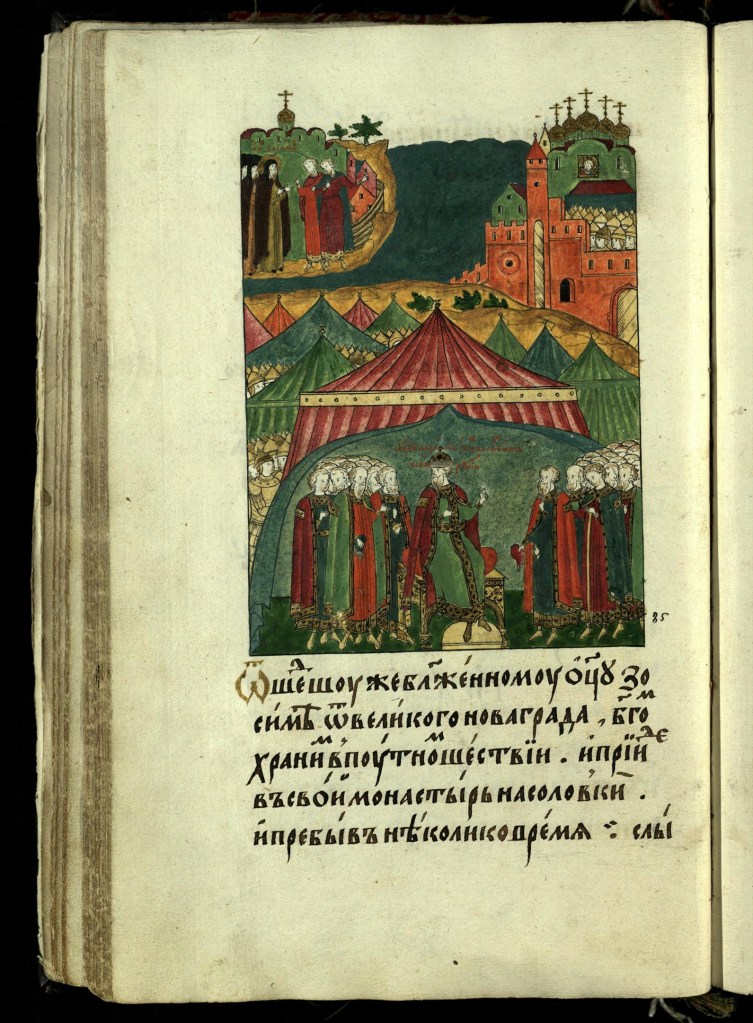 85
Ѿшеⷣшоу же бл҃же́нномоу ѻ҆ц҃ꙋ зо
си́мѣ ѿ вели́кого новаграда , бг҃оⷨ
храниⷨ в̾ поу́тноⷨ ше́ствїи . и҆ прїи́деⷣ
въ сво́й монасты́рь на соло́вки .
и҆ пребы́въ нѣ́колико вре́мя : слы́